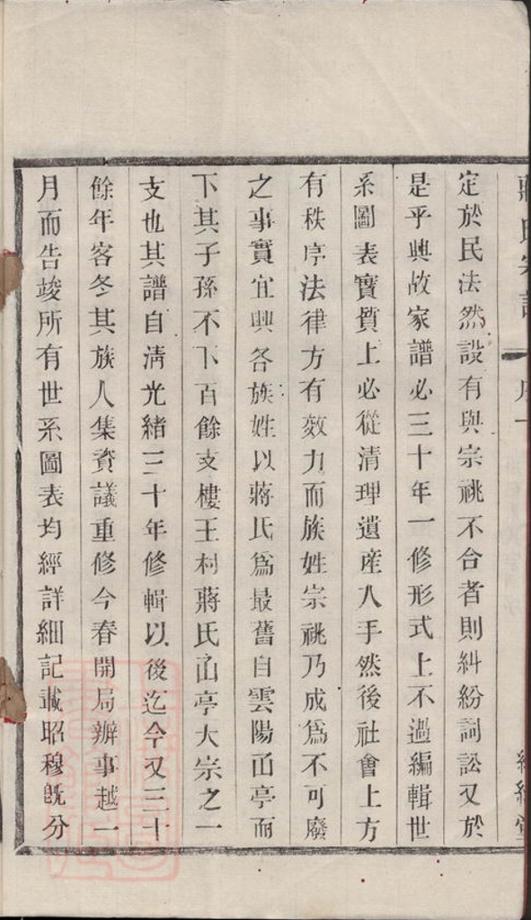 定於民法然設有與宗祧不合者則糾紛詞訟又於
是乎興故家譜必三十年一修形式上不過編輯世
系圖表實質上必從清理遺產入手然後社會上方
有秩序法律方有效力而族姓宗祧乃成爲不可廢
之事實宜興各族姓以蔣氏爲最舊自雲陽㐁亭而
下其子孫不下百餘支樓王村蔣氏㐁亭大宗之一
支也其譜自清光緒三十年修輯以後迄今又三十
餘年客冬其族人集資議重修今春開局辦事越一
月而告竣所有世系圖表均經詳細記載昭穆既分